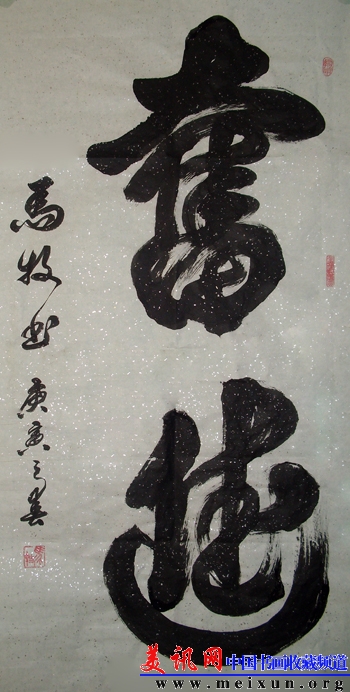 奮進
馬牧书 庚寅之春
美讯网 中国书画收藏频道
www.meixun.org